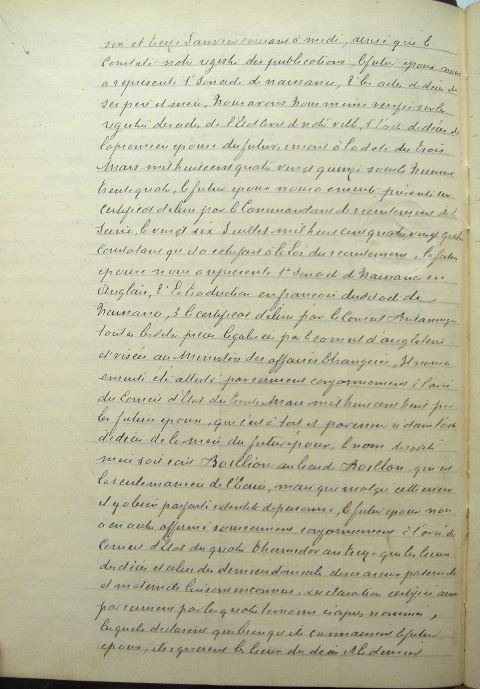 six et treize Janvier courant à midi, ainsi que le
constate notre registre des publications, le futur époux nous
a représenté 1° son acte de naissance, 2° les actes de décès de
ses père et mère, Nous avons Nous même vérifié sur les
registres des actes de l'Etat civil de notre ville, l'acte de décès de
la première épouse du futur, inscrit à la date du trois
Mars mil huit cent quatre vingt quinze sous le numéro
trente quatre, le futur époux nous a ensuite présenté un
certificat délivré par le Commandant de recrutement de la
Seine, le vingt six Juillet mil huit cent quatre vingt
constatant qu'il a satisfait à la loi du recrutement, la future
épouse nous a représenté 1° son acte de Naissance en
Anglais, 2° la traduction en français dudit acte de
Naissance, 3° le certificat délivré par le Consul Britannique
toutes lesdites pièces légalisées par le consul d'angleterre
et visées au Ministère des affaires étrangères, Il nous a
ensuite été attesté par serment conformément à l'avis
du Conseil d'Etat du trente Mars mil huit cent huit par
les futurs époux, que c'est à tort et par erreur si dans l'acte
de décès de la mère du futur époux, le nom de ladite
mère soit écrit Boillion au lieu de Boillon, qui est
la seule manière de l'écrire, mais que malgré cette erreur
il y a bien parfaite identité de personne, le futur époux nous
a en outre affirmé sous serment conformément à l'avis du
Conseil d'Etat du quatre thermidor an treize que les lieux
des décès et celui des derniers domiciles de ses aïeux paternels
et maternels lui sont inconnus, sa déclaration certifiée aussi
par serment par les quatre témoins ci après nommés,
lesquels déclarent que bien qu'ils connaissent le futur
époux, ils ignorent les lieux des décès et le dernier